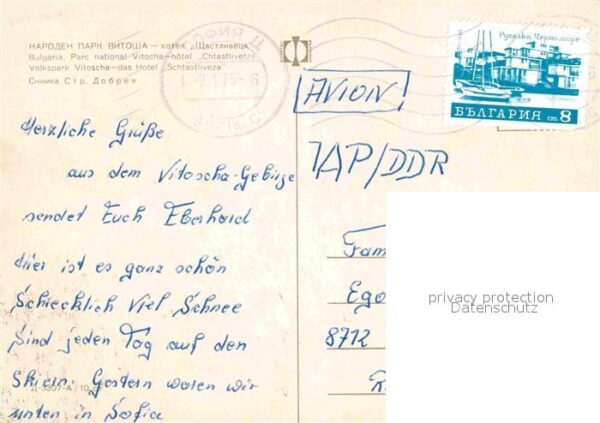 НАРОДЕН ПАРК ВИТОША — хотел „Щастливеца"
Bulgaria, Parc national Vitocha—hôtel „Chtastlivetz"
Volkspark Vitoscha—das Hotel „Schtastliveza"
Снимка Стр. Добрев
Herzliche Grüße
aus dem Vitoscha-Gebirge
sendet Euch Eberhard
Hier ist es ganz schön
Schiecklich viel Schnee
Sind jeden Tag auf den
Skiern. Gestern waren wir
unten in Sofia
AVION!
IAP/DDR
Fam
Ego
8712
R
Русалка Черноморе
БЪЛГАРИЯ ст. 8
privacy protection
Datenschutz